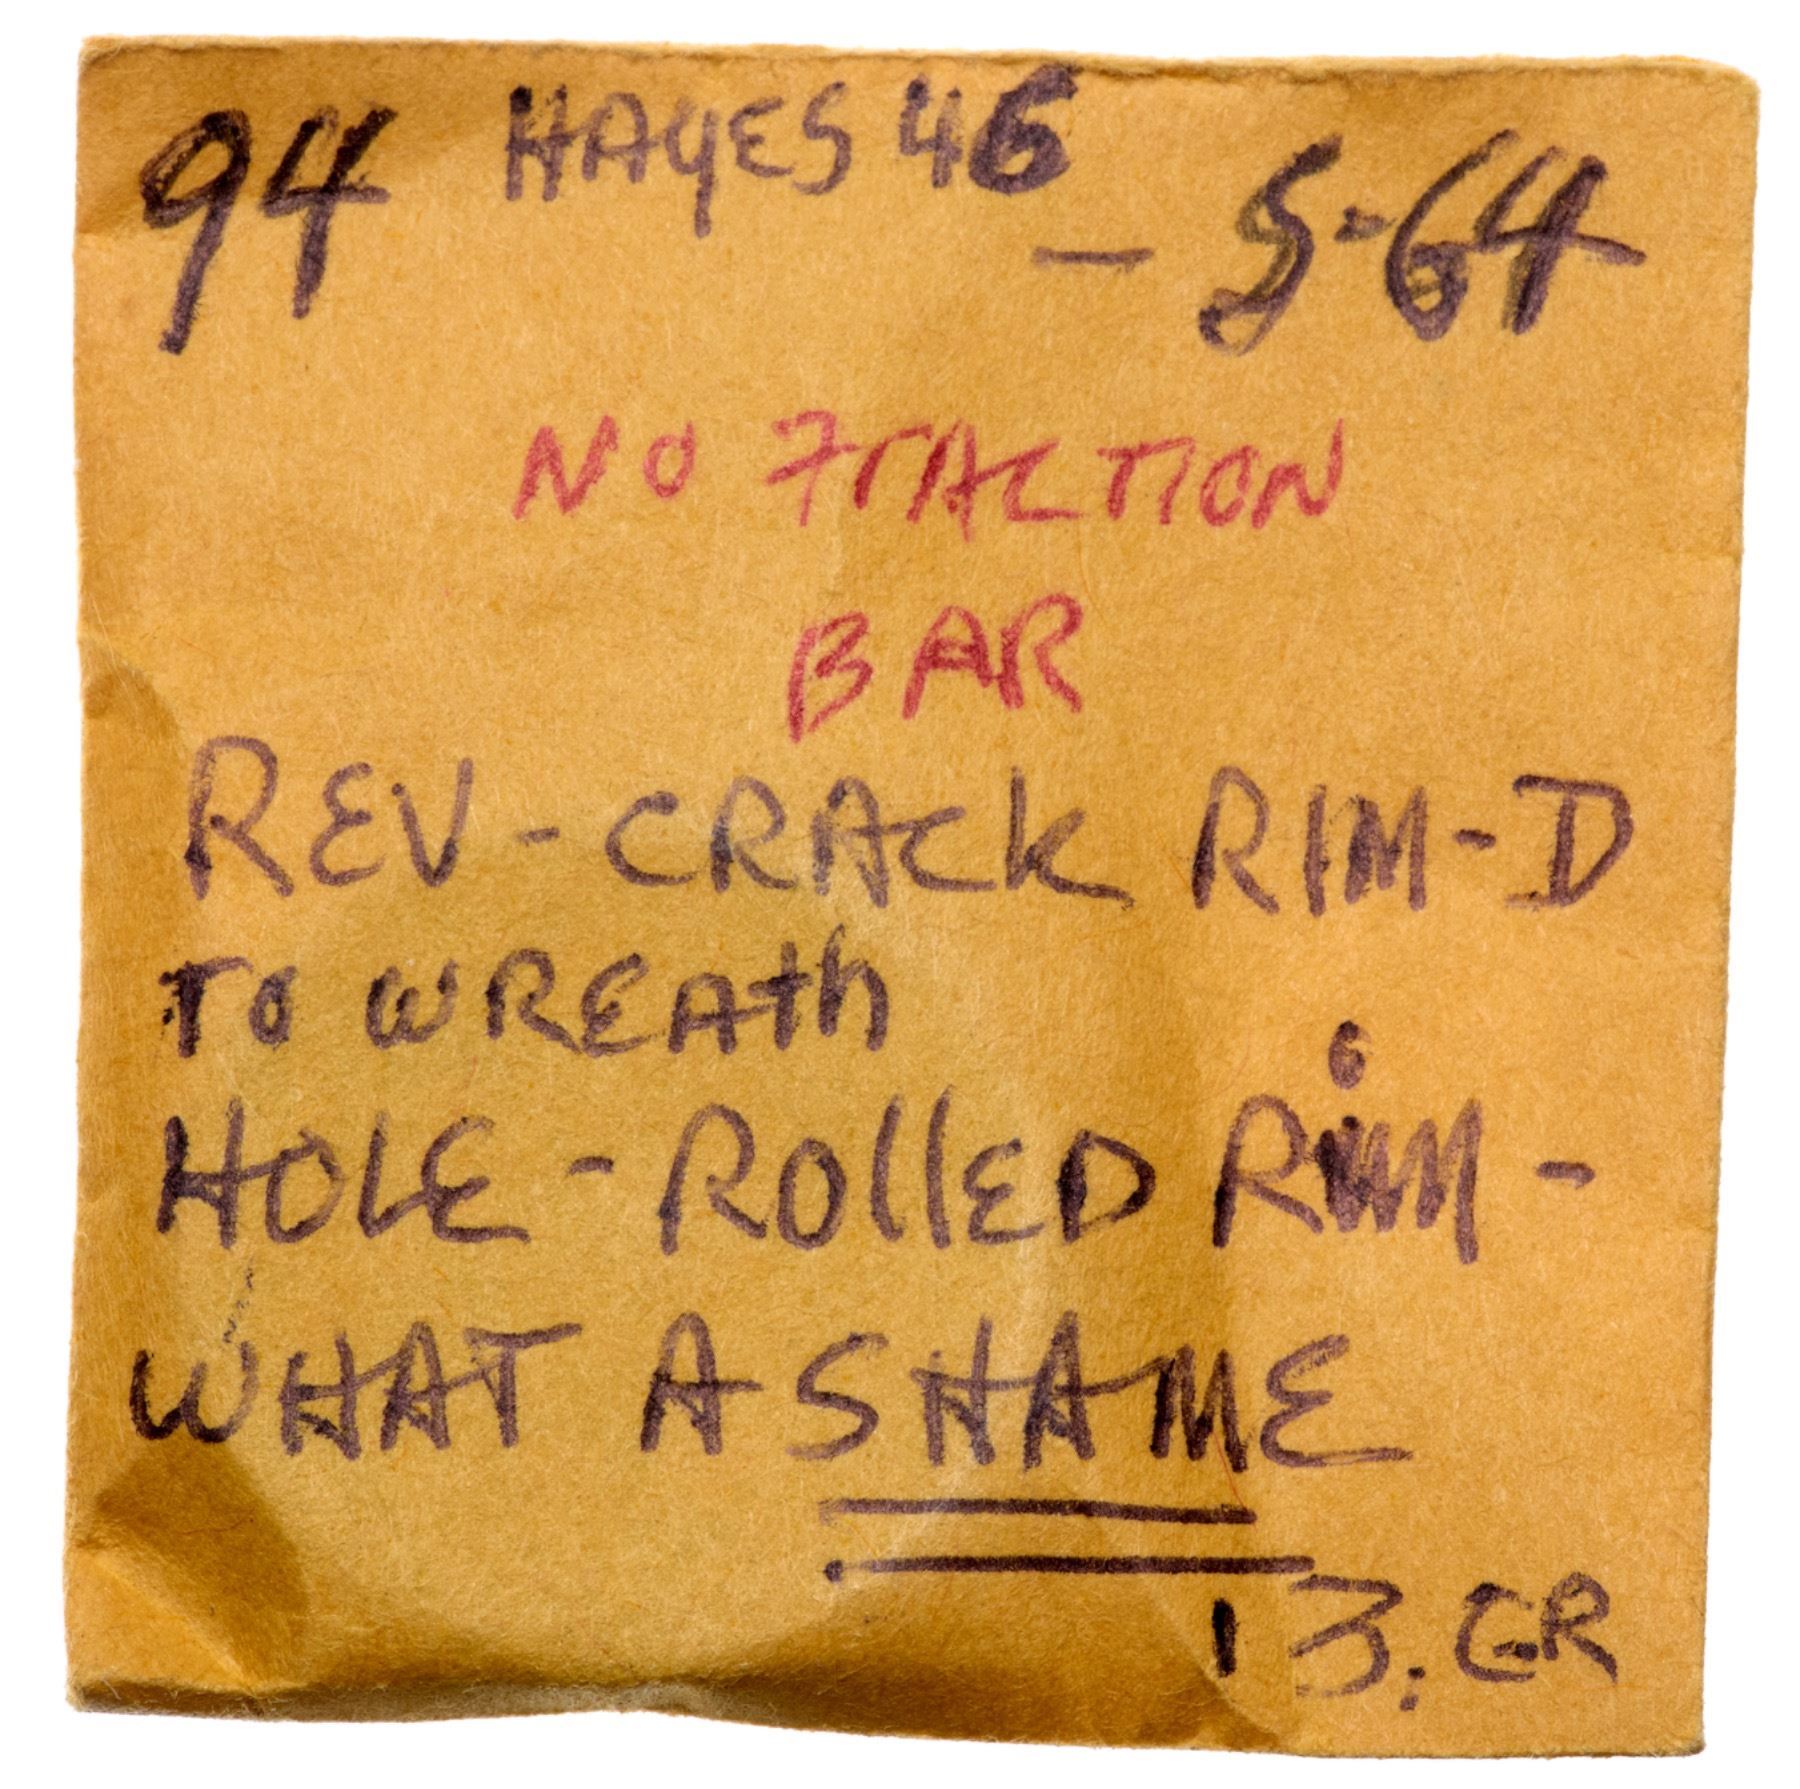 94 HAYES 46 - S-64
NO FRACTION
BAR
REV-CRACK RIM-D
TO WREATH
HOLE-ROLLED RIM-
WHAT A SHAME
13.GR